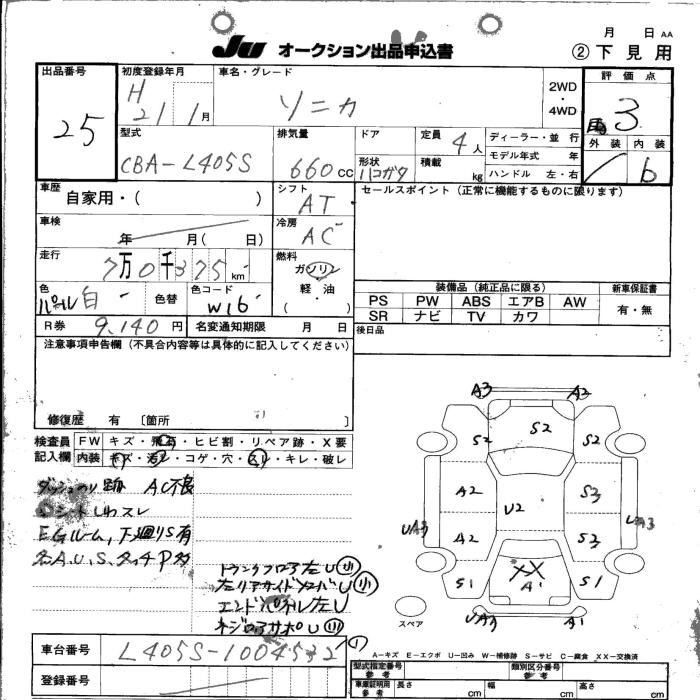 月 日 AA
JU オークション出品申込書 ② 下見用
出品番号 初度登録年月 車名・グレード 2WD・4WD 評価点
25 H 21 1月 ソニカ 3
型式 排気量 ドア 定員 4人 ディーラー・並 行 外装 内装
CBA-L405S 660cc 形状 ハコガタ 積載 kg モデル年式 年 b
ハンドル 左・右
車歴 自家用・( ) シフト AT セールスポイント (正常に機能するものに限ります)
車検 年 月( 日) 冷房 AC
走行 7万0千375km 燃料 ガソリン
軽・油
( )
色 パール白 色替 色コード W16
装備品 (純正品に限る) 新車保証書
PS PW ABS エアB AW 有・無
SR ナビ TV カワ
R券 9,140円 名変通知期限 月 日 後日品
注意事項申告欄 (不具合内容等は具体的に記入してください)
修復歴 有 〔箇所 〕
検査員 FW キズ・飛石・ヒビ割・リペア跡・X要
記入欄 内装 キズ・汚レ・コゲ・穴・スレ・キレ・破レ
ダッシュのり跡 AC不良
シートしわスレ
EGルーム、下廻りS有
各A.U.S.タッチP有
トランクフロア左U小
左リアサイドメンバーU小
エンドパネル左U
A3 A3
S2 S2 S2
A2 U2 S3
UA3 A2 S3 UA3
S1 XX A1 S1
UA3 A1
スペア
A-キズ E-エクボ U-凹み W-補修跡 S-サビ C-腐食 XX-交換済
車台番号 L405S-1004532
登録番号
型式指定番号 参考 類別区分番号 参考
車庫証明用 参考 長さ cm 幅 cm 高さ cm